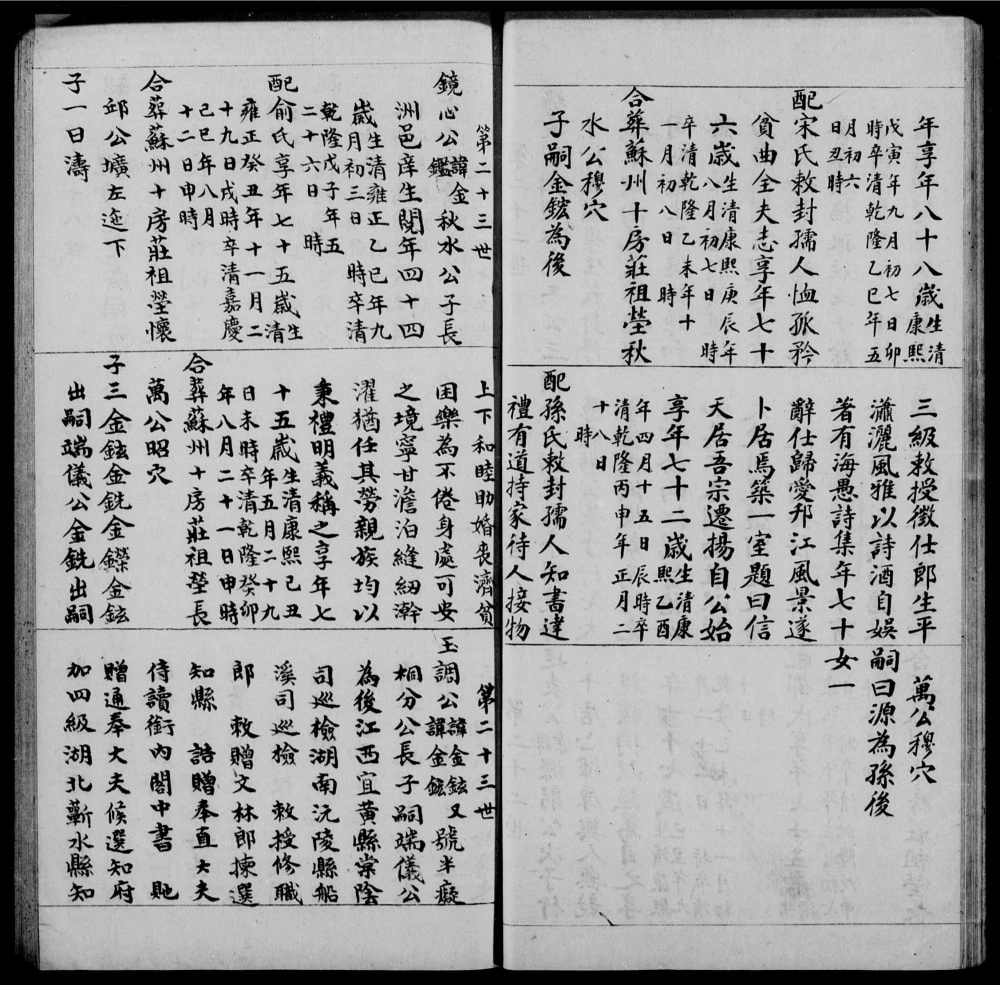 年享年八十八歲生清康熙
戊寅年九月初七日卯
時卒清乾隆乙巳年五
月初六
日丑時
配宋氏敕封孺人恤孤矜
貧曲全夫志享年七十
六歲生清康熙庚辰年
八月初七日 時
卒清乾隆乙未年十
一月初八日 時
合葬蘇州十房莊祖塋秋
水公穆穴
子嗣金鋐為後
三級敕授徵仕郎生平
瀟灑風雅以詩酒自娛
著有海愚詩集年七十
辭仕歸愛邗江風景遂
卜居焉築一室題曰信
天居吾宗遷揚自公始
享年七十二歲生清康
熙乙酉
年四月十五日辰時卒
清乾隆丙申年正月二
十八日
時
配孫氏敕封孺人知書達
禮有道持家待人接物
萬公穆穴
嗣曰源為孫後
女一
第二十三世
鏡心公諱金鑑秋水公子長
洲邑庠生閱年四十四
歲生清雍正乙巳年九
月初三日 時卒清
乾隆戊子年五
二十六日 時
配俞氏享年七十五歲生清
雍正癸丑年十一月二
十九日戌時卒清嘉慶
己巳年八月
十二日申時
合葬蘇州十房莊祖塋懷
邱公壙左迤下
子一日濤
上下和睦助婚喪濟貧
困樂為不倦身處可安
之境寧甘澹泊縫紉澣
濯猶任其勞親族均以
秉禮明義稱之享年七
十五歲生清康熙己丑
年五月二十九
日未時卒清乾隆癸卯
年八月二十一日申時
合葬蘇州十房莊祖塋長
萬公昭穴
子三金鉉金銑金鑅金鉉
出嗣端儀公金銑出嗣
第二十三世
玉調公諱金鉉諱金鋐又號半癡
桐分公長子嗣端儀公
為後江西宜黃縣棠陰
司巡檢湖南沅陵縣船
溪司巡檢 敕授修職
郎 敕贈文林郎揀選
知縣 誥贈奉直大夫
侍讀銜內閣中書 貤
贈通奉大夫候選知府
加四級湖北蘄水縣知